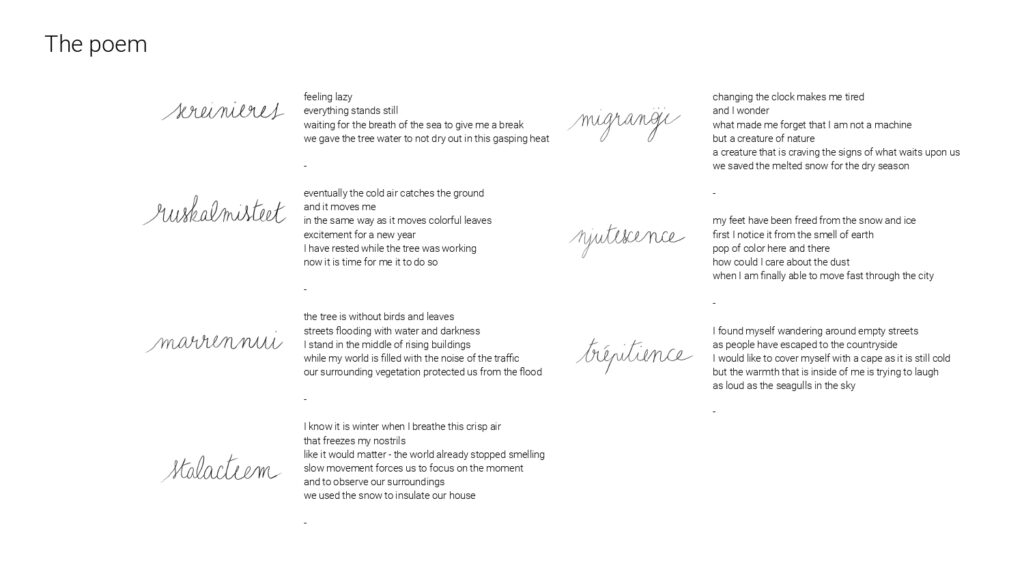 The poem
sereinieres
feeling lazy
everything stands still
waiting for the breath of the sea to give me a break
we gave the tree water to not dry out in this gasping heat
-
ruskalmisteet
eventually the cold air catches the ground
and it moves me
in the same way as it moves colorful leaves
excitement for a new year
I have rested while the tree was working
now it is time for me it to do so
-
marrennui
the tree is without birds and leaves
streets flooding with water and darkness
I stand in the middle of rising buildings
while my world is filled with the noise of the traffic
our surrounding vegetation protected us from the flood
-
stalactiem
I know it is winter when I breathe this crisp air
that freezes my nostrils
like it would matter - the world already stopped smelling
slow movement forces us to focus on the moment
and to observe our surroundings
we used the snow to insulate our house
-
changing the clock makes me tired
and I wonder
what made me forget that I am not a machine
but a creature of nature
a creature that is craving the signs of what waits upon us
we saved the melted snow for the dry season
-
njutescence
my feet have been freed from the snow and ice
first I notice it from the smell of earth
pop of color here and there
how could I care about the dust
when I am finally able to move fast through the city
-
trépitience
I found myself wandering around empty streets
as people have escaped to the countryside
I would like to cover myself with a cape as it is still cold
but the warmth that is inside of me is trying to laugh
as loud as the seagulls in the sky
-